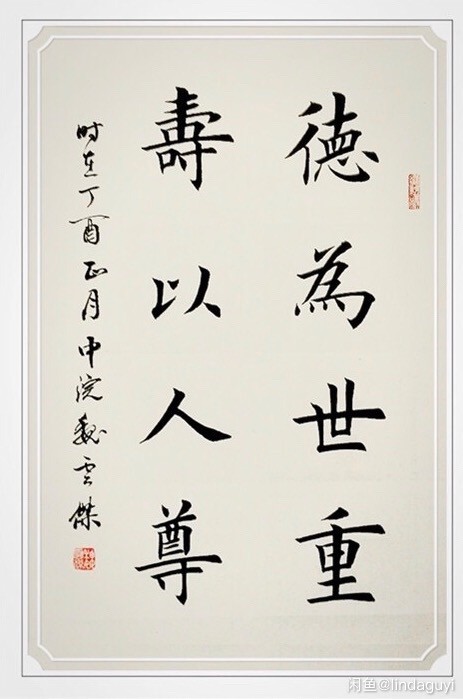 德為世重
壽以人尊
时在丁酉正月中浣魏云傑
闲鱼@lindaguyi